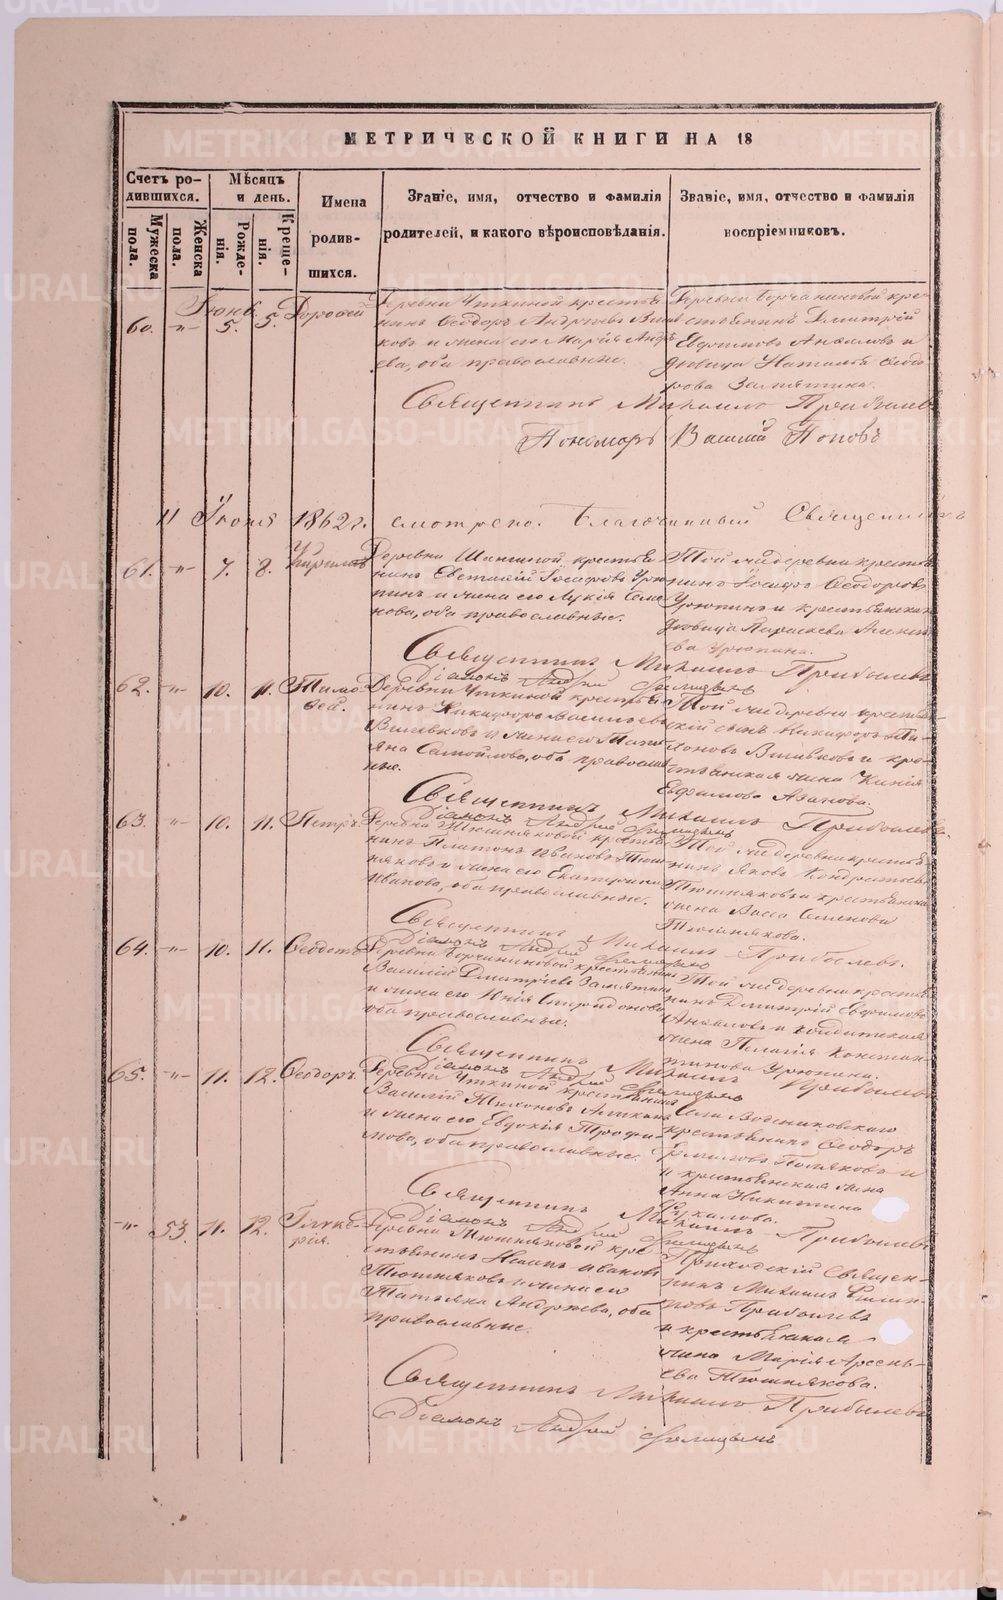 МЕТРИЧЕСКОЙ КНИГИ НА 18
Счетъ ро-
дившихся.
Мѣсяцъ
и день.
Имена
родив-
шихся.
Званіе, имя, отчество и фамилія
родителей, и какого вѣроисповѣданія.
Званіе, имя, отчество и фамилія
воспріемниковъ.
Мужеска
пола.
Женска
пола.
Рожде-
нія.
Креще-
нія.
Іюнь
60. -"- 5. 5. Дорофей
Деревни Уткиной крестья
нинъ Ѳеодоръ Андреевъ
ковъ и жена его Марія Андр
ева, оба православные.
Деревни кре-
стьянинъ Дмитрій
Евфимовъ и
дѣвица Наталья Ѳеодо
рова Замятина.
Священникъ Михаилъ Прибылевъ
Пономарь Василій Поповъ
11 Іюня 1862 г. смотрено. Благочинный Священникъ
61. -"- 7. 8. Кириллъ
Деревни крестья
нинъ Евстафій Іосифовъ Урю
пинъ и жена его Лукія Семе
нова, оба православные.
Той же деревни крестья
нинъ Іосифъ Ѳеодоровъ
Урюпинъ и крестьянская
дѣвица Параскева Алекс
ѣева Урюпина.
Священникъ Михаилъ Прибылевъ
Діаконъ Андрей
62. -"- 10. 11. Тимо-
ѳей.
Деревни Уткиной крестья
нинъ Никифоръ Васильевъ
и жена его Татья
на Самойлова, оба православ
ные.
Той же деревни крестьян
скій сынъ Никифоръ Ти-
хоновъ и кре-
стьянская жена
Ефимова Азанова.
Священникъ Михаилъ Прибылевъ.
Діаконъ Андрей
63. -"- 10. 11. Петръ.
Деревни Тюшняковой крестья
нинъ Платонъ Ивановъ Тюш
няковъ и жена его Екатерина
Иванова, оба православные.
Той же деревни крестья
нинъ Яковъ Кондратьевъ
Тюшняковъ и крестьянская
жена Васса Семенова
Тюшнякова.
Священникъ Михаилъ Прибылевъ.
Діаконъ Андрей
64. -"- 10. 11. Ѳеодотъ
Деревни крестьянинъ
Василій Дмитріевъ Замятинъ
и жена его Спиридонова
оба православные.
Той же деревни крестья
нинъ Дмитрій Евфимовъ
и
жена Пелагія Констан-
тинова Урюпина.
Священникъ Михаилъ Прибылевъ
Діаконъ Андрей
65. -"- 11. 12. Ѳеодоръ.
Деревни Уткиной крестьянинъ
Василій Тихоновъ
и жена его Евдокія Трофи-
мова, оба православные.
Села
крестьянинъ Ѳеодоръ
Поляковъ и
и крестьянская жена
Анна Никитина
Священникъ Михаилъ Прибылевъ
Діаконъ Андрей
-"- 53. 11. 12. Глике-
рія.
Деревни Тюшняковой кре-
стьянинъ Ивановъ
Тюшняковъ и жена его
Татьяна Андреева, оба
православные.
Приходскій Священ-
никъ Михаилъ Филип-
повъ Прибылевъ
и крестьянская
жена Марія Арсень-
ева Тюшнякова.
Священникъ Михаилъ Прибылевъ
Діаконъ Андрей
METRIKI.GASO-URAL.RU